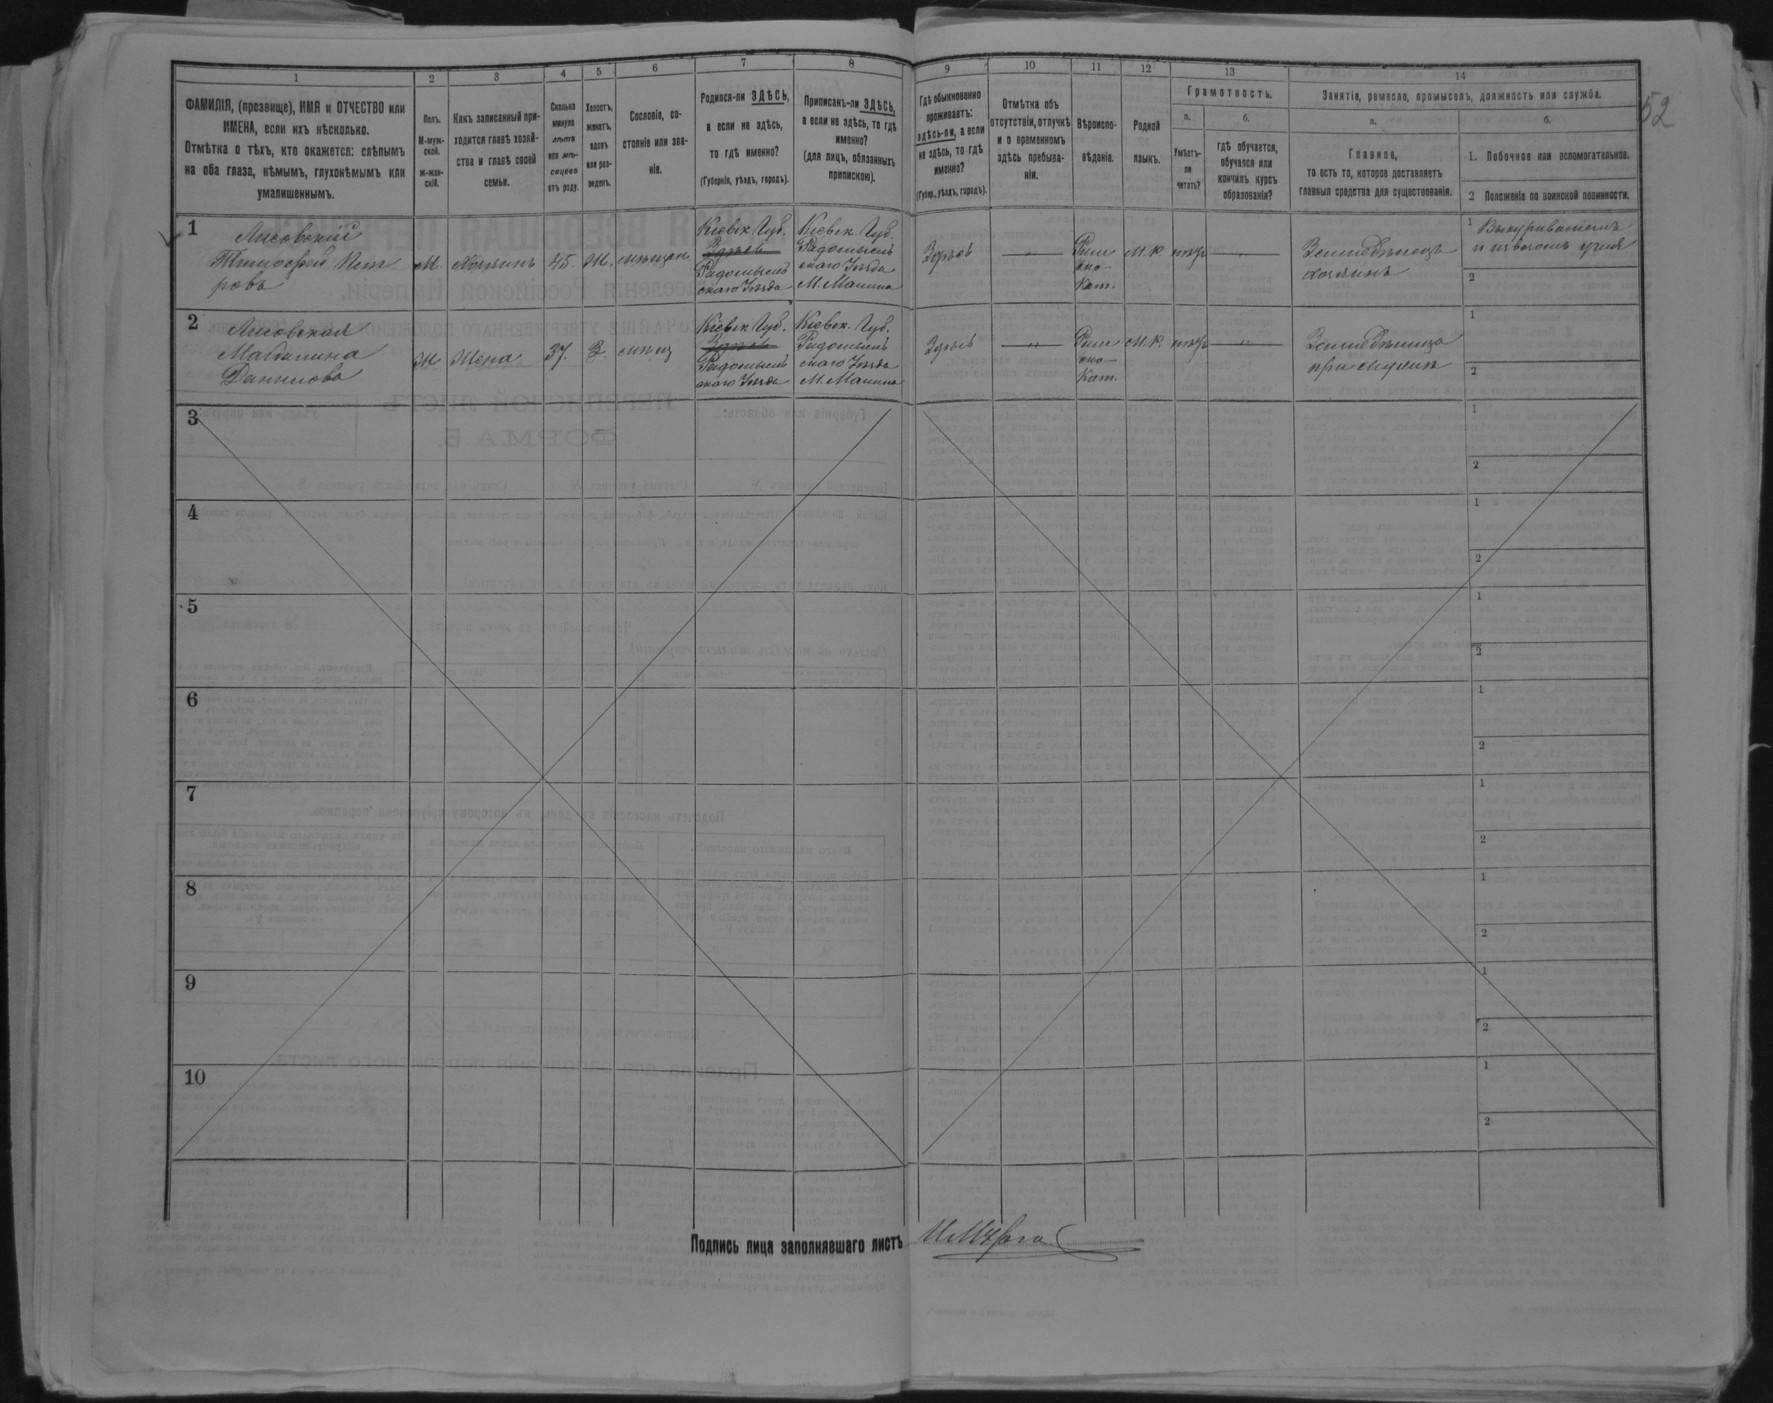 1 2 3 4 5 6 7 8 9 10 11 12 13 14
ФАМИЛІЯ, (прозвище), ИМЯ и ОТЧЕСТВО или
ИМЕНА, если ихъ нѣсколько.
Отмѣтка о тѣхъ, кто окажется: слѣпымъ
на оба глаза, нѣмымъ, глухонѣмымъ или
умалишеннымъ.
Полъ.
М-муж-
ской.
ж-жен-
скій.
Какъ записанный при-
ходится главѣ хозяй-
ства и главѣ своей
семьи.
Сколько
минуло
лѣтъ
или мѣ-
сяцевъ
отъ роду.
Холостъ,
женатъ,
вдовъ
или раз-
веденъ.
Сословіе, со-
стояніе или зва-
ніе.
Родился-ли ЗДѢСЬ,
а если не здѣсь,
то гдѣ именно?
(Губернія, уѣздъ, городъ).
Приписанъ-ли ЗДѢСЬ,
а если не здѣсь, то гдѣ
именно?
(для лицъ, обязанныхъ
припискою).
Гдѣ обыкновенно
проживаетъ:
здѣсь-ли, а если
не здѣсь, то гдѣ
именно?
(Губер., уѣздъ, городъ).
Отмѣтка объ
отсутствіи, отлучкѣ
и о временномъ
здѣсь пребыва-
ніи.
Вѣроиспо-
вѣданіе.
Родной
языкъ.
Грамотность.
а.
Умѣетъ-
ли
читать?
б.
гдѣ обучается,
обучался или
кончилъ курсъ
образованія?
Занятіе, ремесло, промыселъ, должность или служба.
а.
Главное,
то есть то, которое доставляетъ
главныя средства для существованія.
б.
1. Побочное или вспомогательное.
2 Положеніе по воинской повинности.
52
1
Лисовскій
Тимофей Пет
ровъ
М. Хозяинъ 45 Ж. мѣщан
Кіевск. Губ.
Здѣсь
Радомысль
скаго Уѣзда
Кіевск. Губ.
Радомысль
скаго Уѣзда
М. Малина
Здѣсь
Рим
ско
Кат.
м.р. нѣтъ
Земледѣлецъ
хозяинъ
1
2
2
Лисовская
Магдалина
Данилова
Ж Жена 37. З. мѣщ
Кіевск. Губ.
Здѣсь
Радомысль
скаго Уѣзда
Кіевск. Губ.
Радомысль
скаго Уѣзда
М. Малина
Здѣсь
Рим
ско
Кат.
м.р. нѣтъ
Земледѣлица
при мужѣ
1
2
3
1
2
4
1
2
5
1
2
6
1
2
7
1
2
8
1
2
9
1
2
10
1
2
Подпись лица заполнявшаго листъ